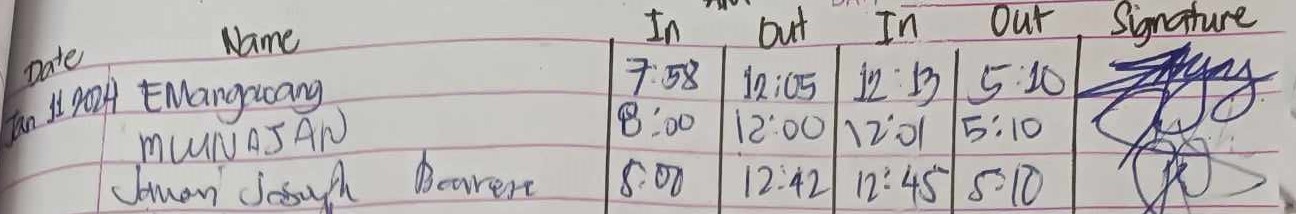 Date Name In Out In Out Signature
Jan 11 2024 EMangawang 7:58 12:05 12:13 5:10
MWNAJAN 8:00 12:00 12:01 5:10
8:00 12:42 12:45 5:10